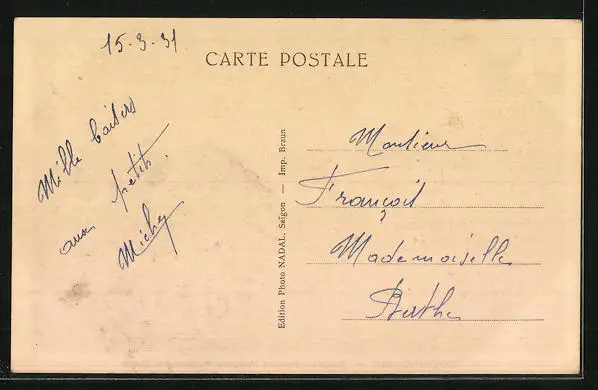 15-3-31
CARTE POSTALE
Mille baisers
aux petits.
Michy
Edition Photo NADAL, Saïgon — Imp. Braun
Monsieur
François
Mademoiselle
Berthe